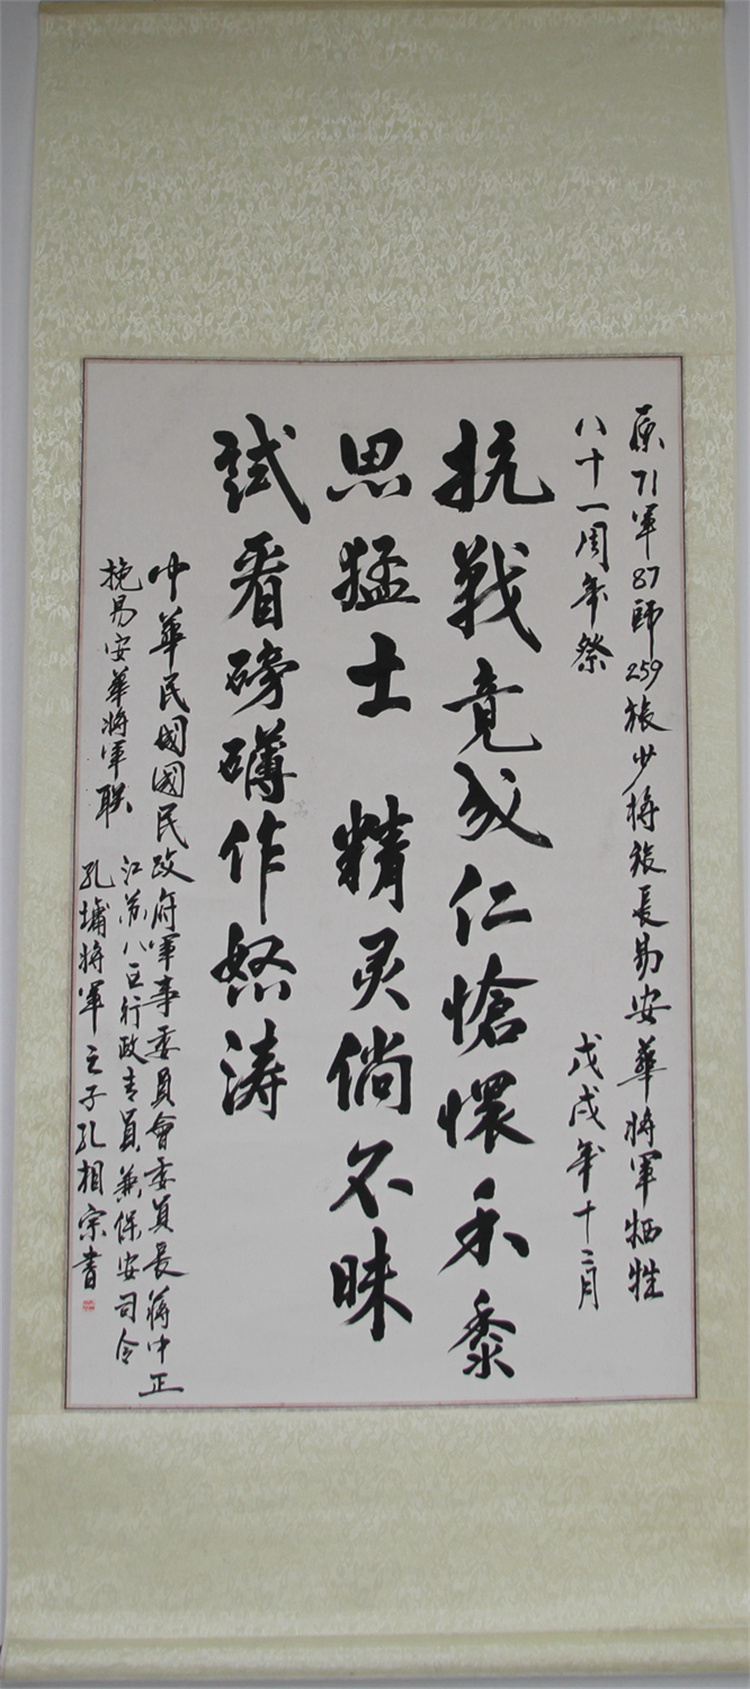 原71軍87師259旅少将旅長易安華将軍牺牲
八十一周年祭 戊戌年十二月
抗戰竟成仁愴懷禾黍
思猛士 精灵倘不昧
試看磅礴作怒涛
中華民國國民政府軍事委員會委員長蔣中正
挽易安華将軍联
江苏八区行政专員兼保安司令
孔墉将軍之子孔相宗書